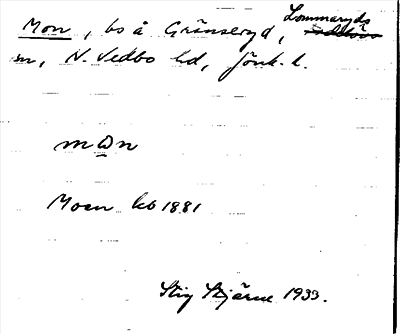 Mon, bs å Gränseryd, Lommaryds
sn, N. Vedbo hd, Jönk. l.
mωn
Moen kb 1881
Stig Stjärne 1933.